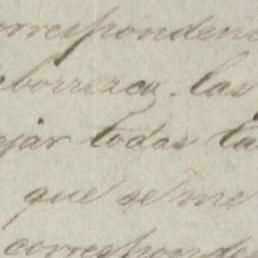 orresponden
borrezca. las
ejar todas la
que se me
corresponde